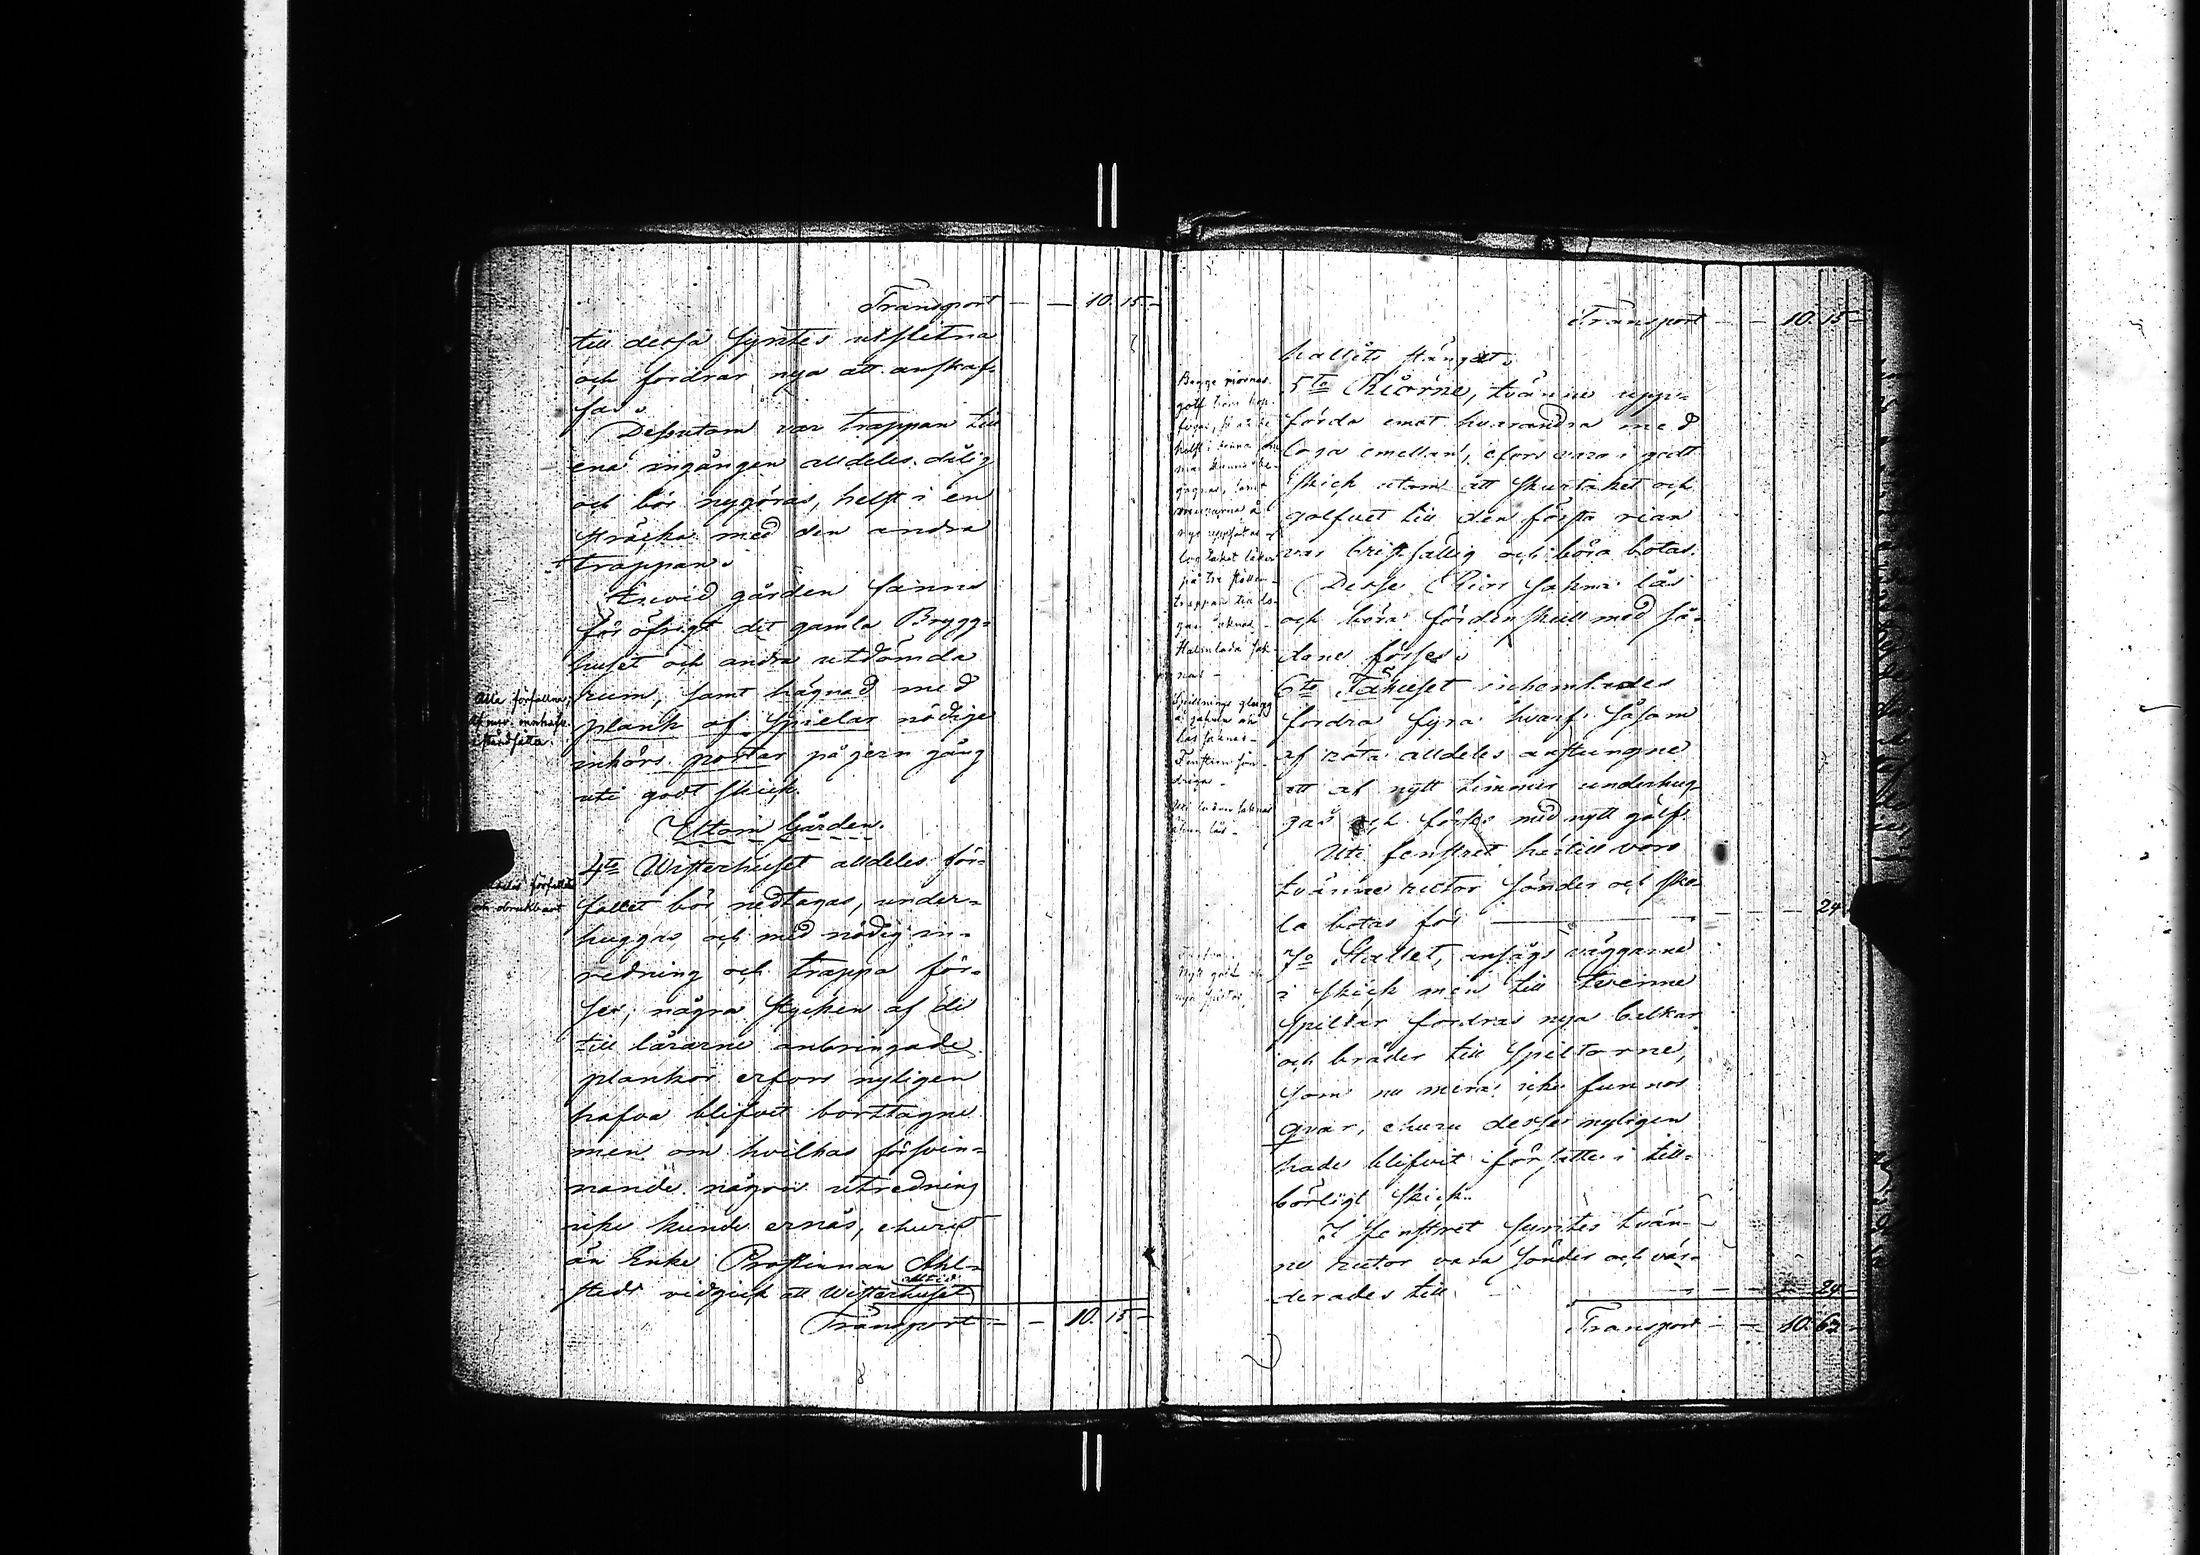 Transport - - 10. 15 -
till dessa syntes utslitna
och fordrar nya att anskaf-
fas.
Dessutom var trappan till
ena ingången alldeles dålig
och bör nygöras, helst i en
sträcka med den andra
trappan.
Invid gården fanns
för öfrigt det gamla Brygg-
huset och andra utdömda
rum, samt hägnad med
plank af spielar nödige
inkörs portar på jern gång
uti godt skick.
Alla förfallna,
Utom Gården.
4to Wisterhuset alldeles för-
fallet bör nedtagas, under-
huggas och med nödig in-
redning och trappa för-
ses, några stycken af de
till lårarne anbringade
plankor erfors nyligen
hafva blifvit borttagne
men om hvilkas försvin-
nande någon utredning
icke kunde ernås, ehuru
än Enke Prostinnan Ahl-
stedt vidgick att Wisterhuset alltid
Transport - - 10. 15 -
8
Transport - - 10. 15 -
hallits stängdt.
5to Riorne, tvänne upp-
förda emot hvarandra med
loga emellan, efors vara i godt
skick utom att skurtaket och
golfvet till den första rian
var bristfällig och böra botas.
Desse Rior sakna lås
och böra fördenskull med så-
dane förses.
6to Fähuset inhemtades
fordra fyra hvarf såsom
af röta alldeles anstungne
att af nytt timmer underhug-
gas och förses med nytt golf.
Uti fenstret härtill voro
tvänne rutor sönder och sko-
la botas för - - - 24
7o Stallet, ansågs väggarne
i skick men till tvenne
spiltar fordras nya balkar
och bräder till spiltorne,
som nu mera icke funnos
qvar, ehuru desse nyligen
hade blifvit försatte i till-
börligt skick.
I fenstret syntes tvän-
ne rutor vara sönder och vär-
derades till - - - 24 -
Transport - - 10. 63 -
Bägge riornas
golf
Halmlada sak-
nas -